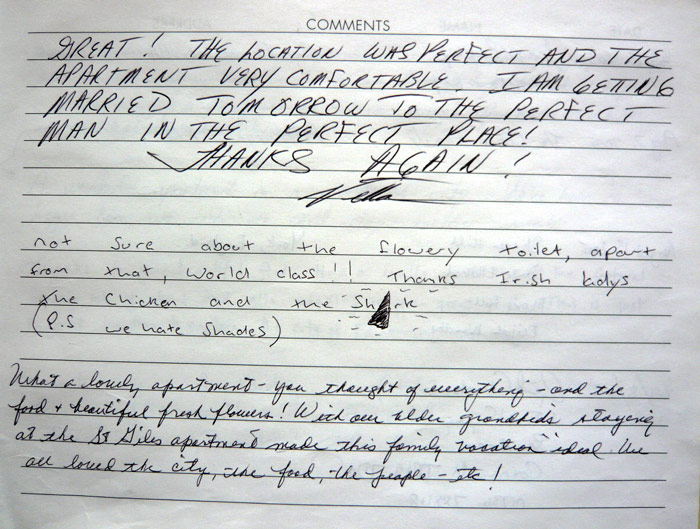 COMMENTS
GREAT! THE LOCATION WAS PERFECT AND THE
APARTMENT VERY COMFORTABLE. I AM GETTING
MARRIED TOMORROW TO THE PERFECT
MAN IN THE PERFECT PLACE!
THANKS AGAIN!
not sure about the flowery toilet, apart
from that, World class!! Thanks Irish ladys
the Chicken and the Shark
(P.S we hate Shades)
What a lovely apartment - you thought of everything - and the
food + beautiful fresh flowers! With our older grandkids staying
at the St Giles apartment made this family vacation ideal. We
all loved the city, the food, the people - etc!